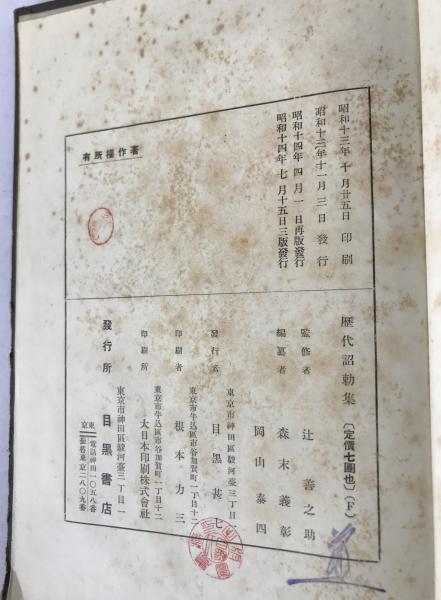 昭和十三年十月廿五日印刷
昭和十三年十一月三日發行
昭和十四年四月一日再版發行
昭和十四年七月十五日三版發行
有所權作著
歷代詔勅集
〔定價七圓也〕(ド)
監修者 辻善之助
編纂者 森末義彰
岡山泰四
東京市神田區駿河臺三丁目一
發行者 目黑甚七
東京市牛込區市谷加賀町一丁目十二
印刷者 根本力三
東京市牛込區市谷加賀町一丁目十二
印刷所 大日本印刷株式會社
東京市神田區駿河臺三丁目一
發行所 目黑書店
電話神田一〇五八番
振替東京二八〇九番